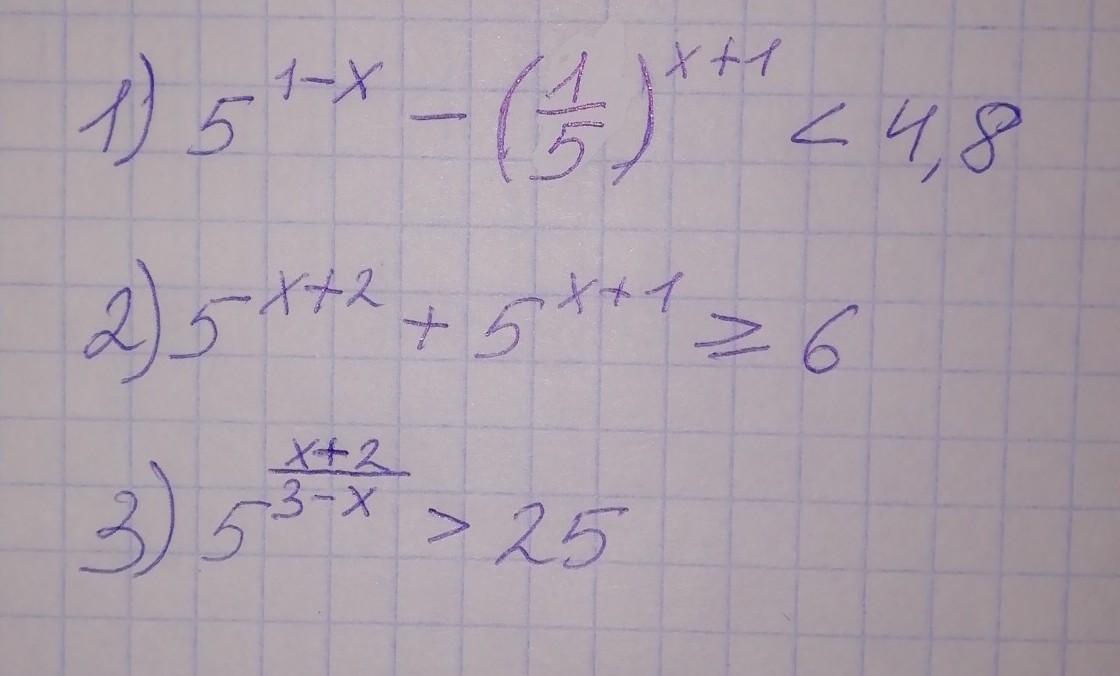 1) 5^{1-x} - (\frac{1}{5})^{x+1} < 4,8
2) 5^{x+2} + 5^{x+1} ≥ 6
3) 5^{\frac{x+2}{3-x}} > 25